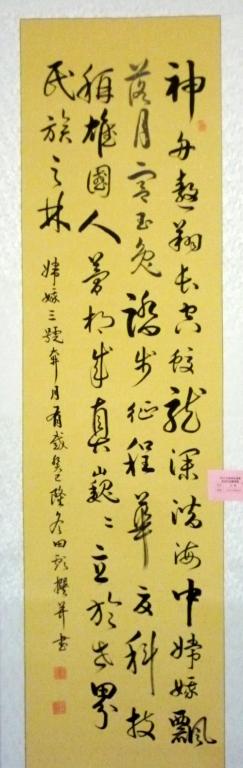 神舟遨翔长空蛟龙深潜海中嫦娥飘
落月宫玉兔踏步征程华夏科技
称雄国人梦想成真巍巍立於世界
民族之林
嫦娥三號奔月有感癸巳隆冬田 撰并书